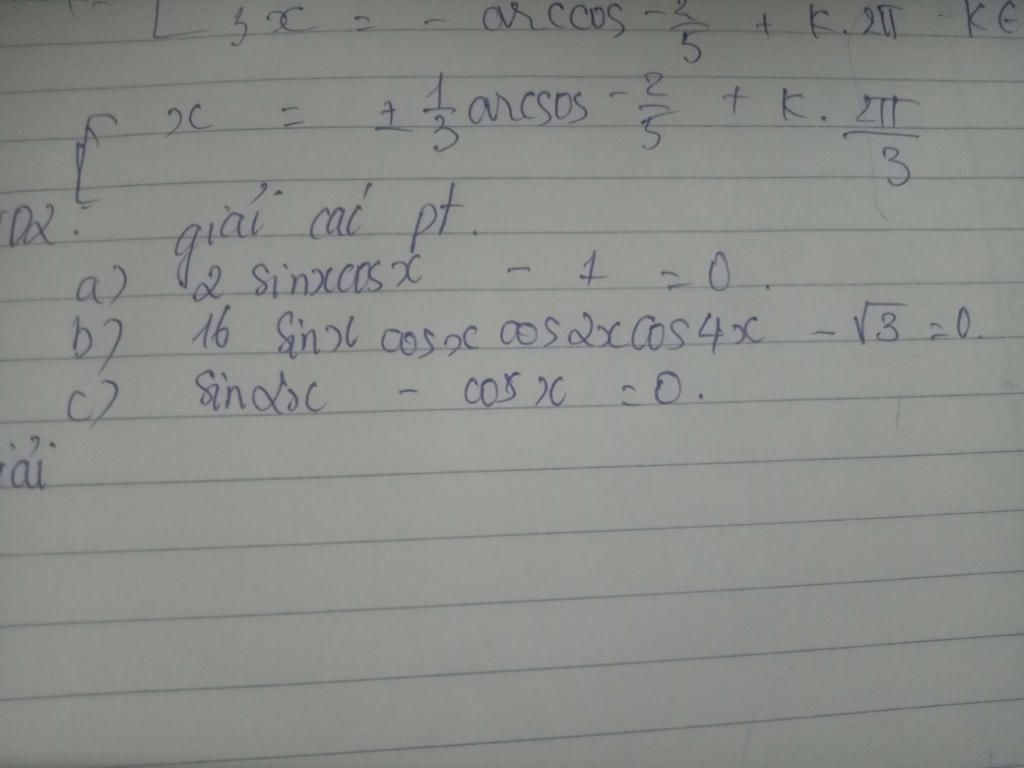 3x = - arccos -2/5 + K. 2π K∈
[ x = ± 1/3 arcsos -2/5 + K. 2π/3
D2: giải các pt.
a) 2 sinxcosx - 1 = 0.
b) 16 sinx cosx cos2xcos4x - √3 = 0.
c) sin2x - cosx = 0.
iải